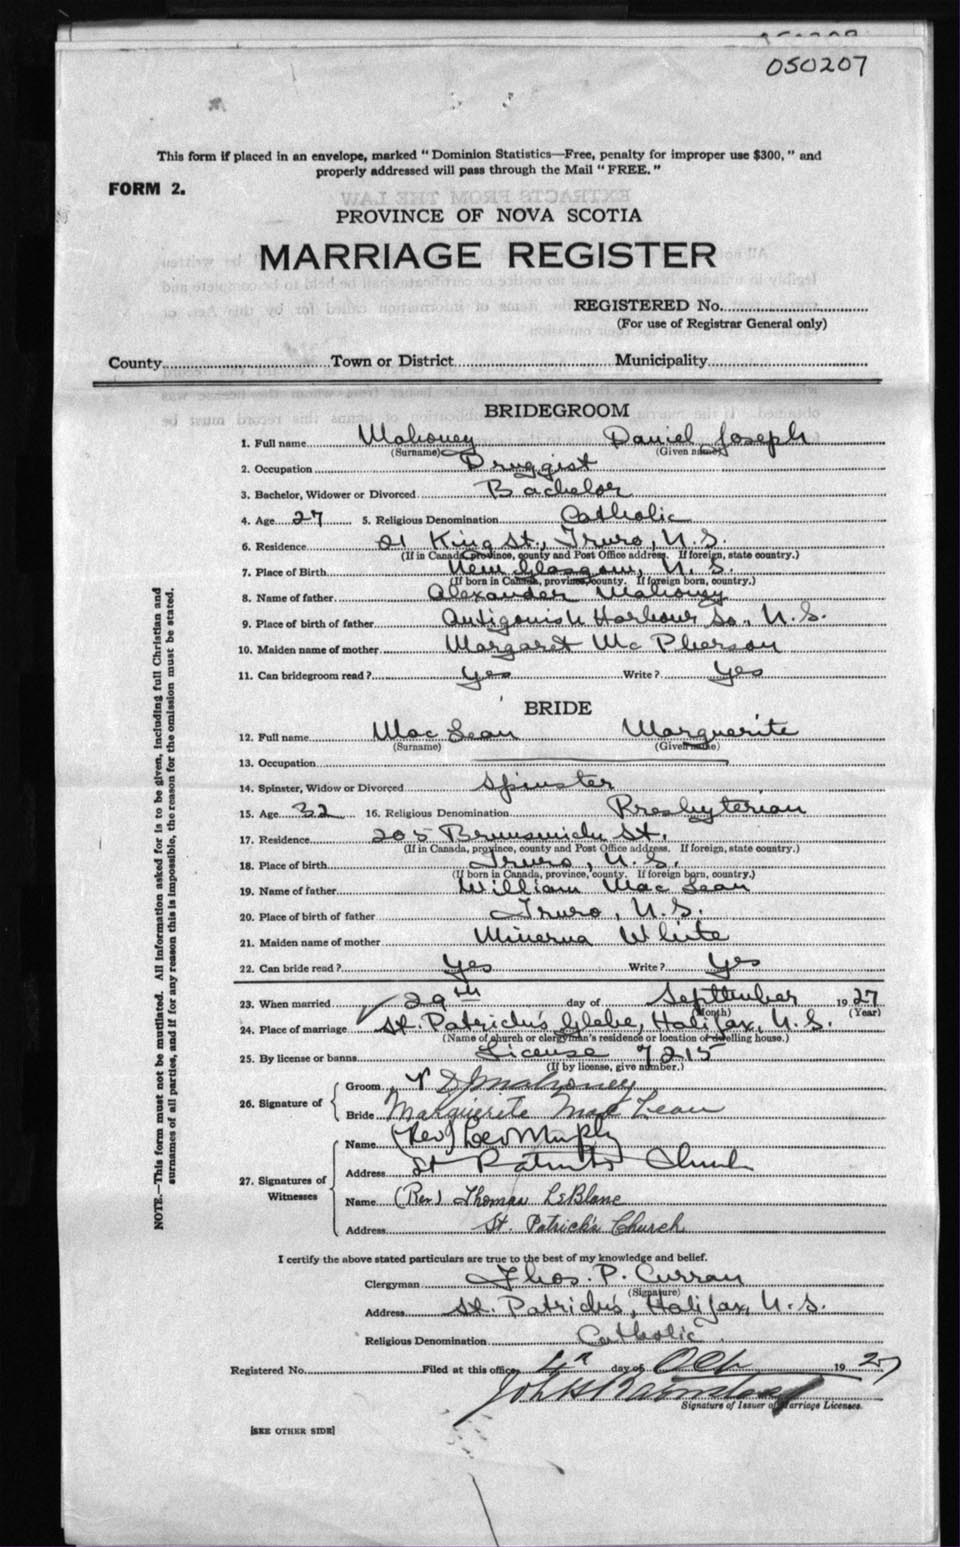 050207
This form if placed in an envelope, marked "Dominion Statistics—Free, penalty for improper use $300," and
properly addressed will pass through the Mail "FREE."
FORM 2.
PROVINCE OF NOVA SCOTIA
MARRIAGE REGISTER
REGISTERED No.
(For use of Registrar General only)
County Town or District Municipality
BRIDEGROOM
1. Full name Mahoney Daniel Joseph
(Surname) (Given name)
2. Occupation Druggist
3. Bachelor, Widower or Divorced Bachelor
4. Age 27 5. Religious Denomination Catholic
6. Residence 21 King St., Truro, N.S.
(If in Canada, province, county and Post Office address. If foreign, state country.)
7. Place of Birth New Glasgow, N.S.
(If born in Canada, province, county. If foreign born, country.)
8. Name of father Alexander Mahoney
9. Place of birth of father Antigonish Harbour So., N.S.
10. Maiden name of mother Margaret McPherson
11. Can bridegroom read? Yes Write? Yes
BRIDE
12. Full name MacLean Marguerite
(Surname) (Given name)
13. Occupation
14. Spinster, Widow or Divorced Spinster
15. Age 32 16. Religious Denomination Presbyterian
17. Residence 205 Brunswick St.
(If in Canada, province, county and Post Office address. If foreign, state country.)
18. Place of birth Truro, N.S.
(If born in Canada, province, county. If foreign born, country.)
19. Name of father William MacLean
20. Place of birth of father Truro, N.S.
21. Maiden name of mother Minerva White
22. Can bride read? Yes Write? Yes
23. When married 29th day of September 1927
(Month) (Year)
24. Place of marriage St. Patrick's Glebe, Halifax, N.S.
(Name of church or clergyman's residence or location of dwelling house.)
25. By license or banns License 7215
(If by license, give number.)
26. Signature of Groom D J Mahoney
Bride Marguerite MacLean
27. Signatures of Witnesses Name (Rev) Leo Murphy
Address St Patrick's Church
Name (Rev.) Thomas LeBlanc
Address St. Patrick's Church
I certify the above stated particulars are true to the best of my knowledge and belief.
Clergyman Thos. P. Curran
(Signature)
Address St. Patrick's, Halifax, N.S.
Religious Denomination Catholic
Registered No. Filed at this office 4th day of Oct 1927
Signature of Issuer of Marriage Licenses.
[SEE OTHER SIDE]
NOTE.—This form must not be mutilated. All information asked for is to be given, including full Christian and
surnames of all parties, and if for any reason this is impossible, the reason for the omission must be stated.